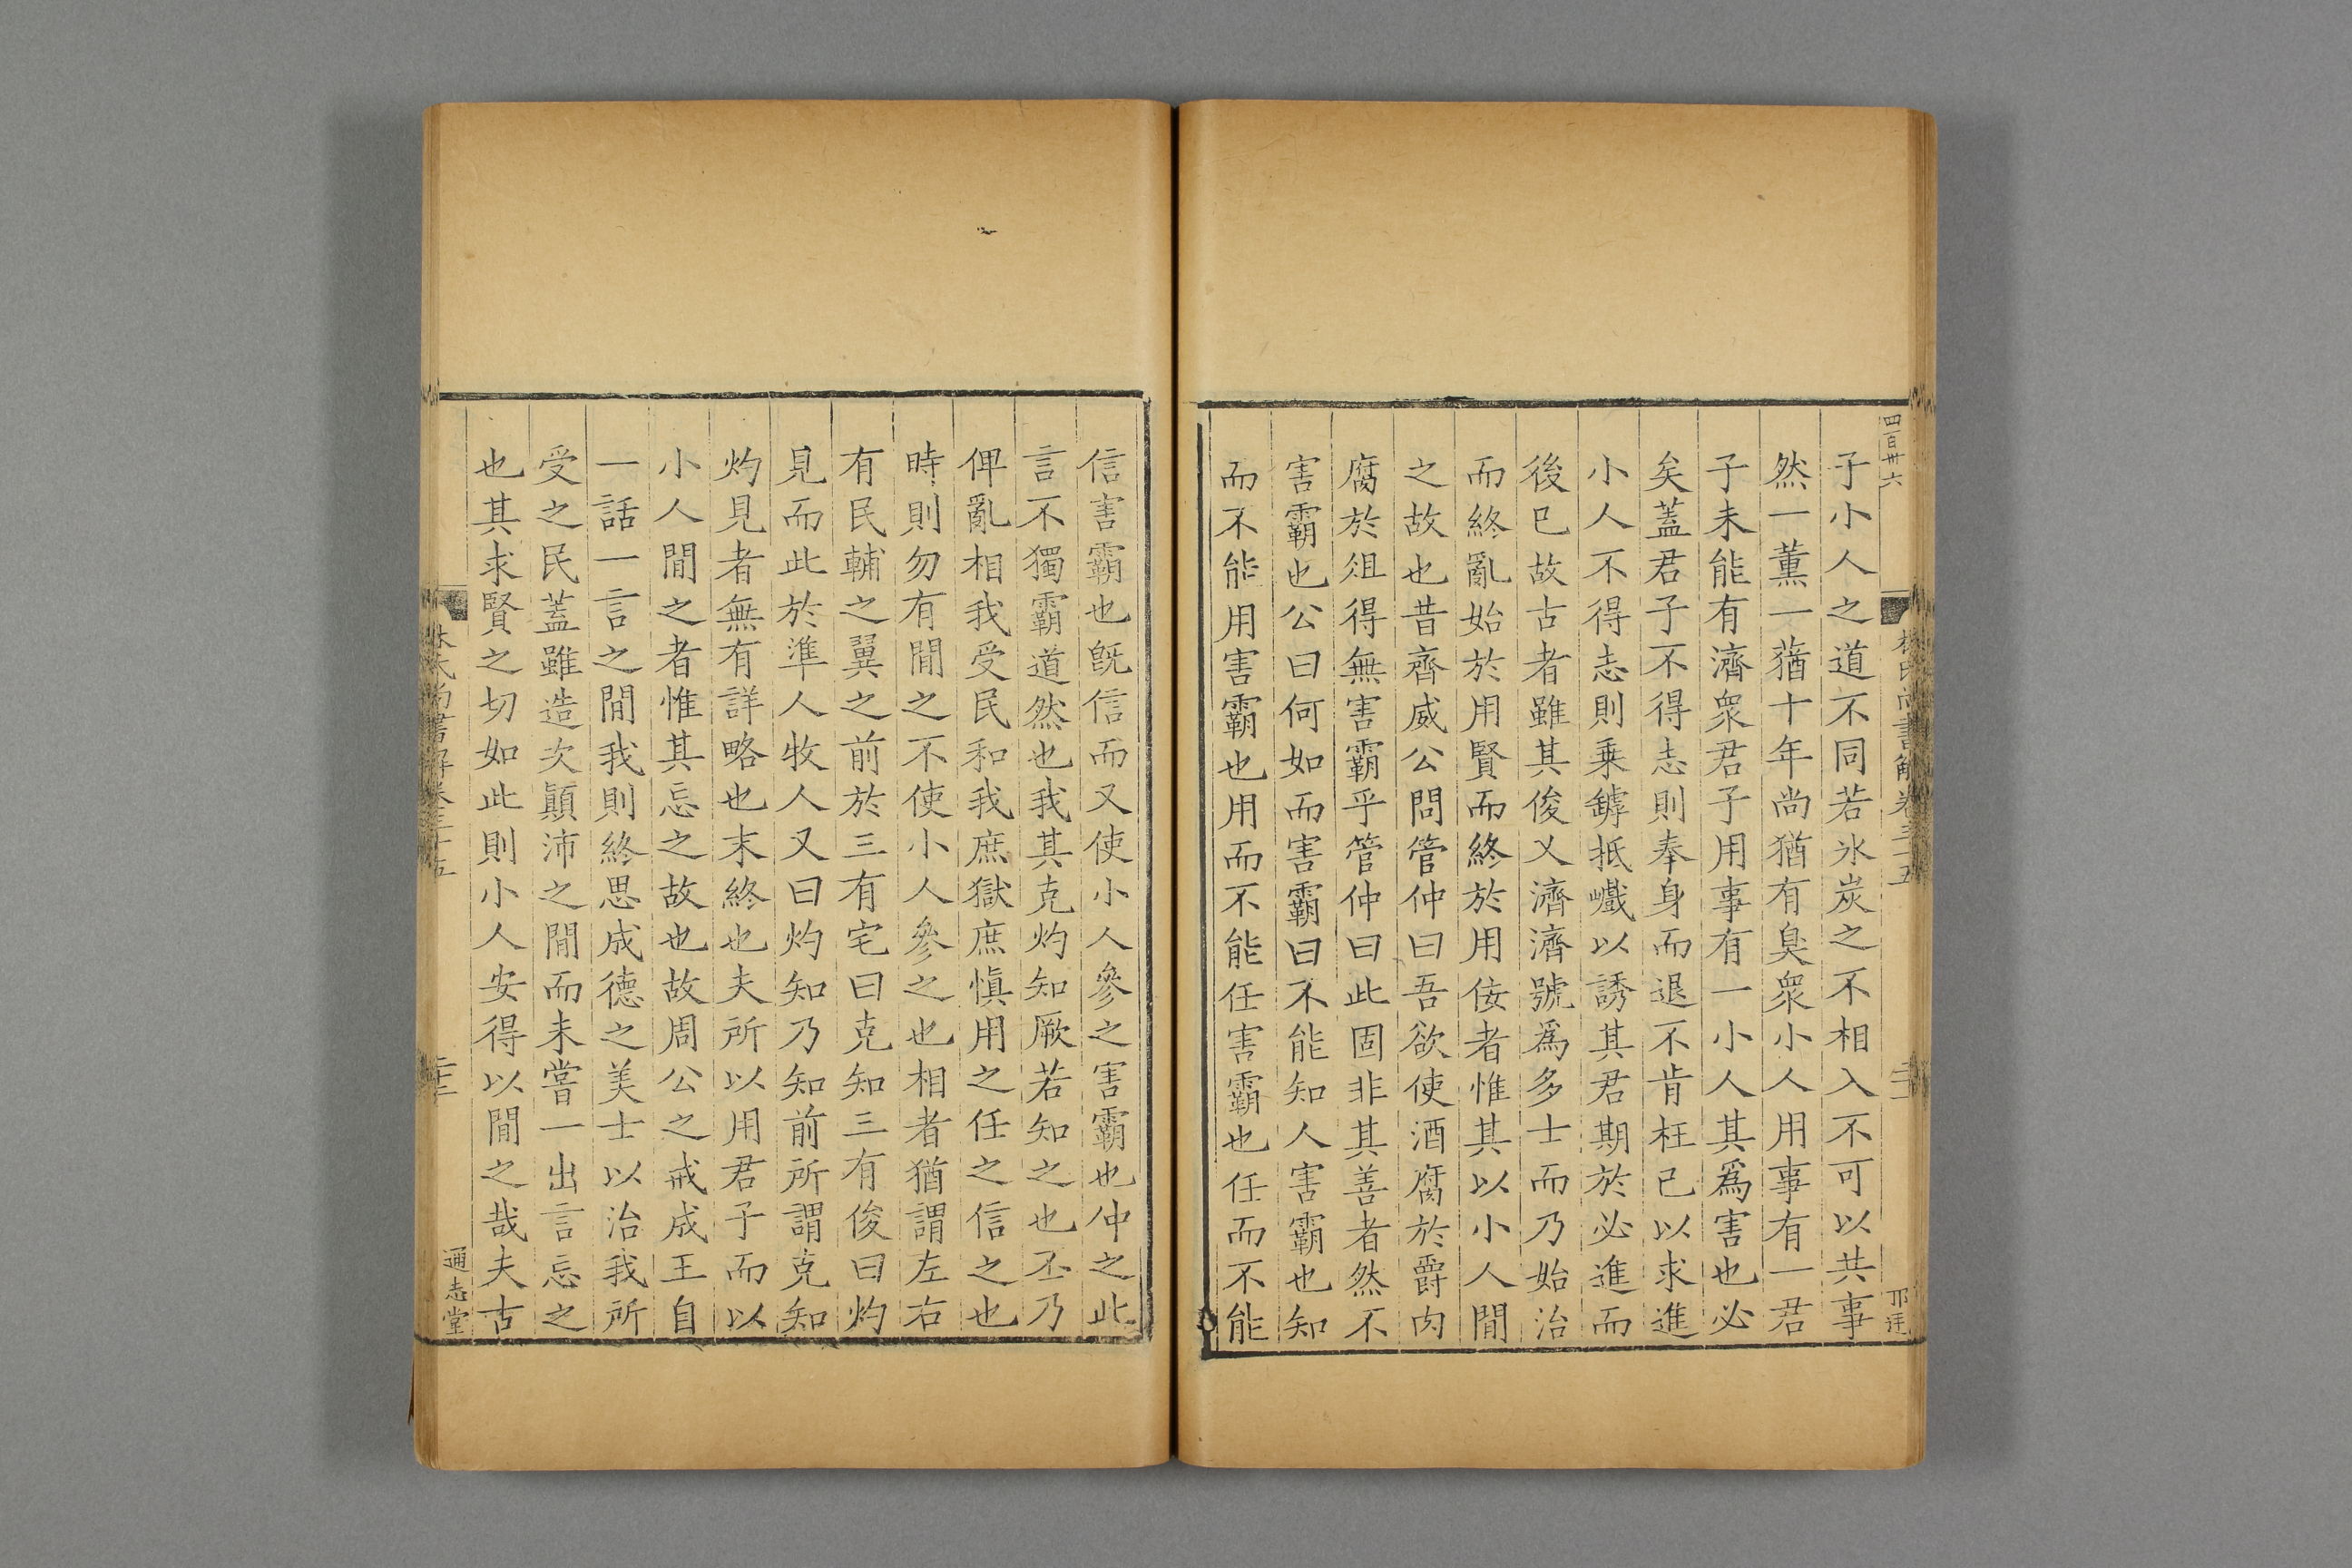 四百卅六
林氏尚書解卷三十五
子小人之道不同若氷炭之不相入不可以共事
然一薰一蕕十年尚猶有臭衆小人用事有一君
子未能有濟衆君子用事有一小人其爲害也必
矣蓋君子不得志則奉身而退不肯枉己以求進
小人不得志則乗鏬抵巇以誘其君期於必進而
後已故古者雖其俊乂濟濟號爲多士而乃始治
而終亂始於用賢而終於用佞者惟其以小人間
之故也昔齊威公問管仲曰吾欲使酒腐於爵肉
腐於俎得無害霸乎管仲曰此固非其善者然不
害霸也公曰何如而害霸曰不能知人害霸也知
而不能用害霸也用而不能任害霸也任而不能
信害霸也旣信而又使小人參之害霸也仲之此
言不獨霸道然也我其克灼知厥若知之也丕乃
俾亂相我受民和我庶獄庶慎用之任之信之也
時則勿有間之不使小人參之也相者猶謂左右
有民輔之翼之前於三有宅曰克知三有俊曰灼
見而此於準人牧人又曰灼知乃知前所謂克知
灼見者無有詳略也末終也夫所以用君子而以
小人間之者惟其忘之故也故周公之戒成王自
一話一言之間我則終思成德之美士以治我所
受之民蓋雖造次顚沛之間而未嘗一出言忘之
也其求賢之切如此則小人安得以間之哉夫古
林氏尚書解卷三十五
通志堂